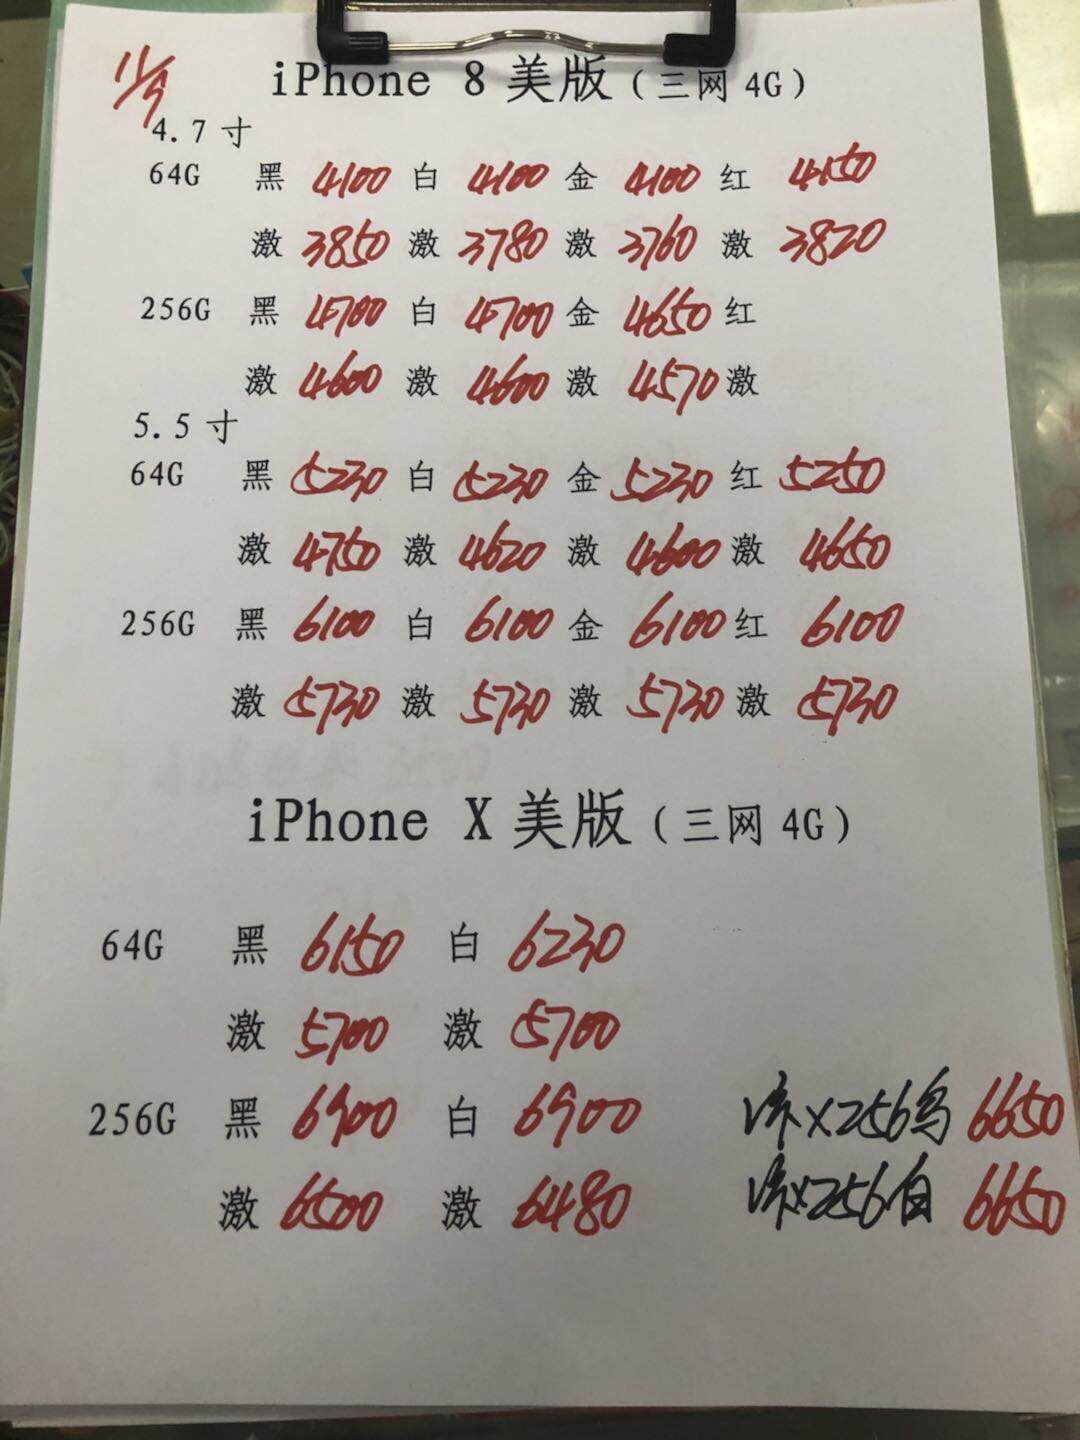 11/9
iPhone 8 美版（三网 4G）
4.7 寸
64G 黑 4100 白 4100 金 4100 红 4150
激 3850 激 3780 激 3760 激 3820
256G 黑 4700 白 4700 金 4650 红
激 4600 激 4600 激 4570 激
5.5 寸
64G 黑 5230 白 5230 金 5230 红 5250
激 4750 激 4620 激 4600 激 4650
256G 黑 6100 白 6100 金 6100 红 6100
激 5730 激 5730 激 5730 激 5730
iPhone X 美版（三网 4G）
64G 黑 6150 白 6230
激 5700 激 5700
256G 黑 6900 白 6900
X256 6650
激 6500 激 6480
X256白 6650